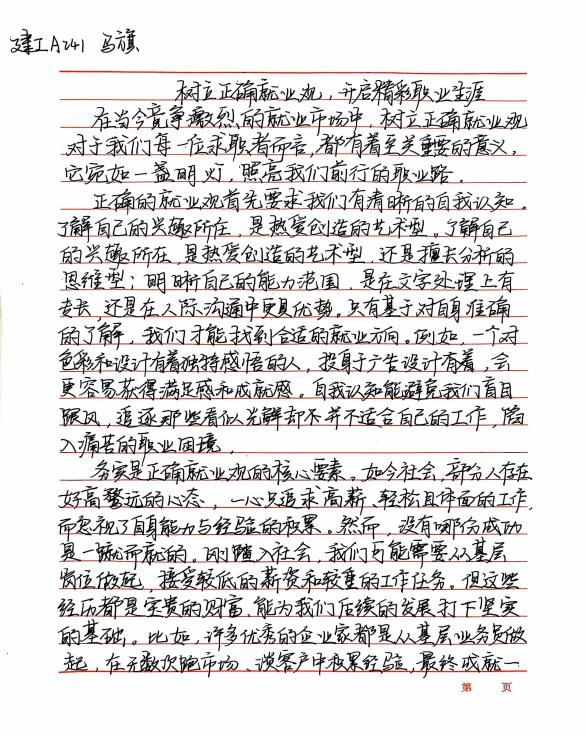 建工A241 马旗
树立正确就业观，开启精彩职业生涯
在当今竞争激烈的就业市场中，树立正确就业观
对于我们每一位求职者而言，都有着至关重要的意义，
它宛如一盏明灯，照亮我们前行的职业路．
正确的就业观首先要求我们有清晰的自我认知．
了解自己的兴趣所在，是热爱创造的艺术型．了解自己
的兴趣所在，是热爱创造的艺术型，还是擅长分析的
思维型；明晰自己的能力范围，是在文字处理上有
专长，还是在人际沟通中更具优势。只有基于对自身准确
的了解，我们才能找到合适的就业方向。例如，一个对
色彩和设计有着独特感悟的人，投身于广告设计有着，会
更容易获得满足感和成就感。自我认知能避免我们盲目
跟风，追逐那些看似光鲜却不并不适合自己的工作，陷
入痛苦的职业困境，
务实是正确就业观的核心要素。如今社会，部分人存在
好高骛远的心态，一心只追求高薪、轻松且体面的工作，
而忽视了自身能力与经验的积累。然而，没有哪份成功
是一蹴而就的。刚踏入社会，我们可能需要从基层
岗位做起，接受较低的薪资和较重的工作任务。但这些
经历都是宝贵的财富，能为我们后续的发展打下坚实
的基础。比如，许多优秀的企业家都是从基层业务员做
起，在无数次跑市场、谈客户中积累经验，最终成就一
第 页